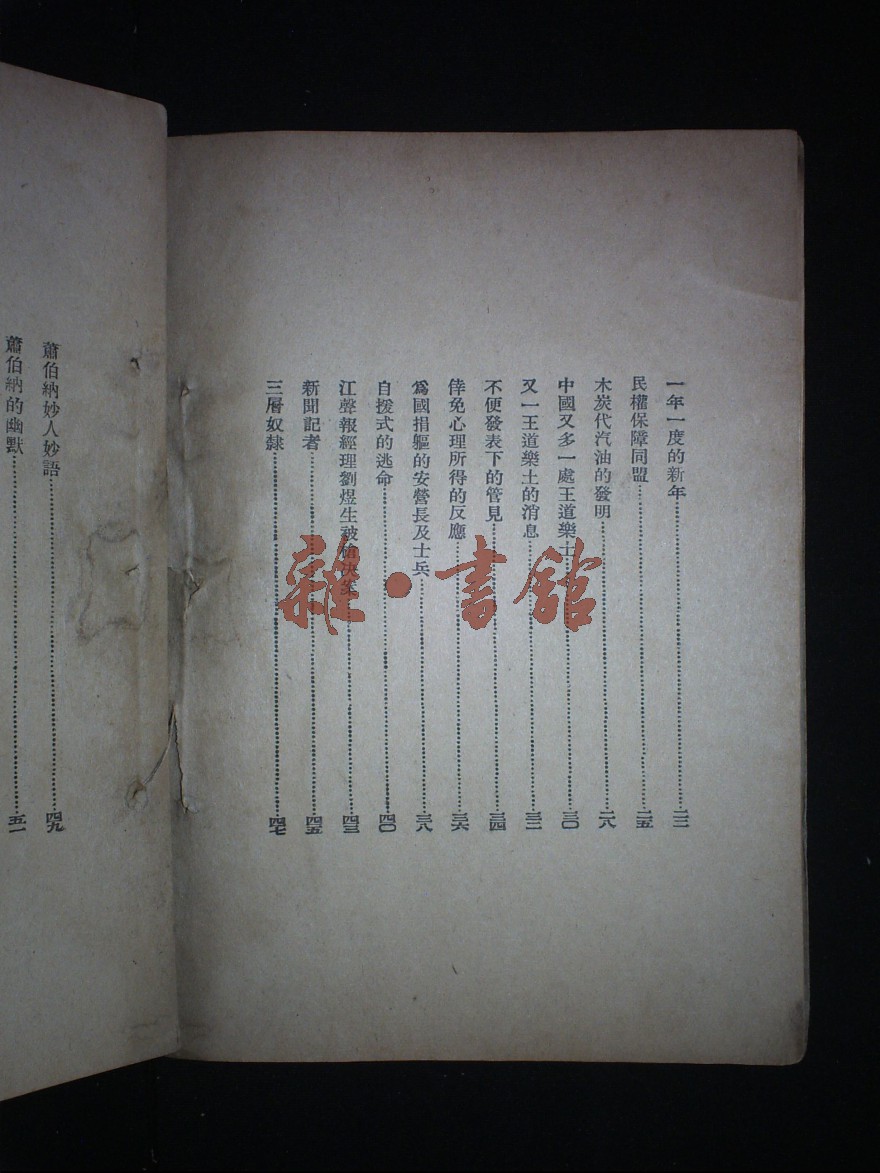 一年一度的新年……二三
民權保障同盟……二五
木炭代汽油的發明……二八
中國又多一處王道樂土……三〇
又一王道樂土的消息……三二
不便發表下的管見……三四
倖免心理所得的反應……三六
爲國捐軀的安營長及士兵……三八
自援式的逃命……四〇
江聲報經理劉煜生被槍決案……四三
新聞記者……四五
三層奴隸……四七
蕭伯納妙人妙語……四九
蕭伯納的幽默……五一
雜·書館